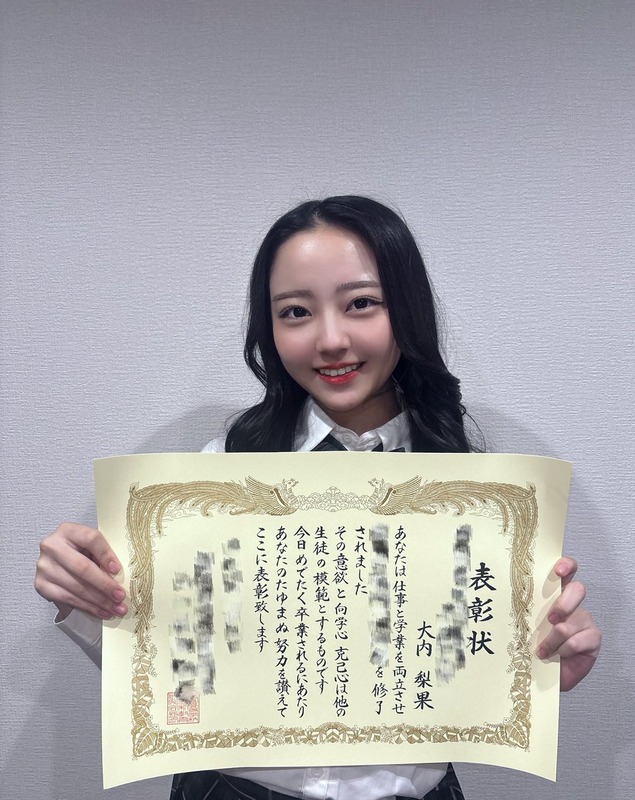 表彰状
大内 梨果
あなたは仕事と学業を両立させ
を修了
されました
その意欲と向学心 克己心は他の
生徒の模範とするものです
今日めでたく卒業されるにあたり
あなたのたゆまぬ努力を讃えて
ここに表彰致します